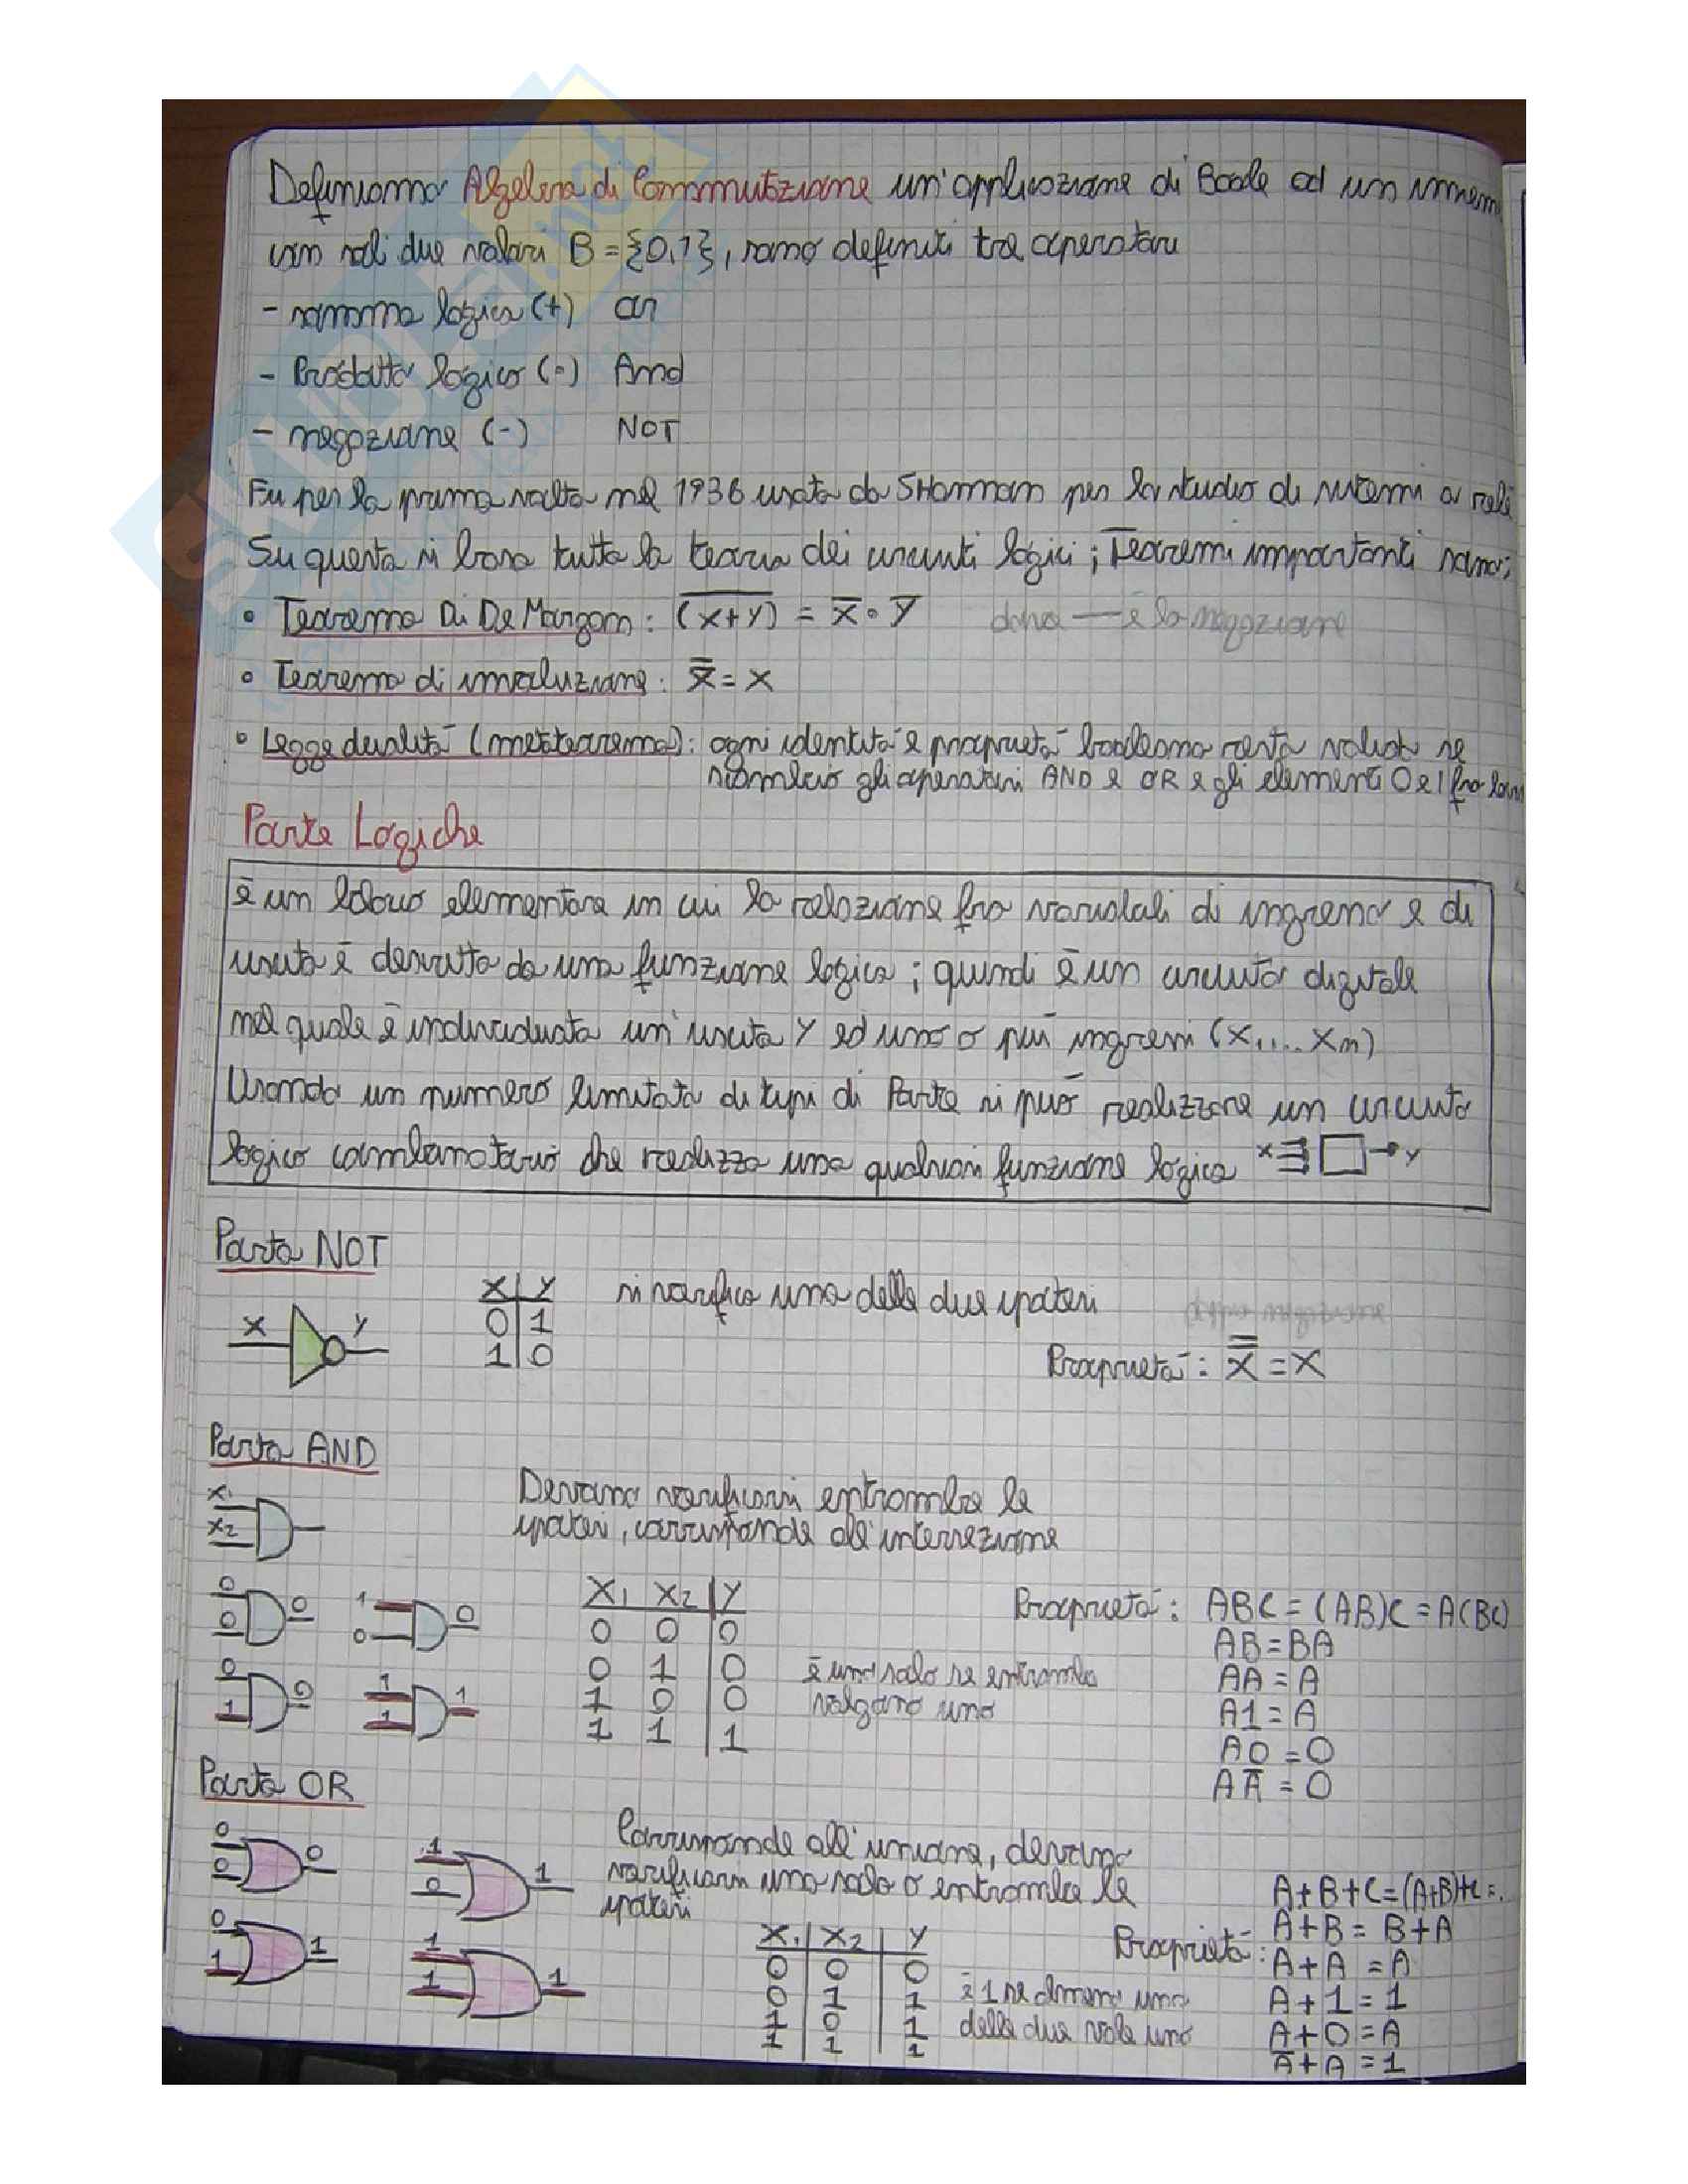 Definiamo Algebra di Commutazione un'applicazione di Boole ad un insieme
con soli due valori B = {0,1}, sono definiti tre operatori
- somma logica (+) or
- Prodotto logico (•) And
- negazione (-) NOT
Fu per la prima volta nel 1936 usata da SHannon per lo studio di sistemi a relè
Su questa si basa tutta la teoria dei circuiti logici; Teoremi importanti sono:
• Teorema Di De Morgan: \overline{(x+y)} = x̅ • y̅ dove — è la negazione
• Teorema di involuzione: x̿ = x
• Legge dualità (metateorema): ogni identità e proprietà booleana resta valida se
scambio gli operatori AND e OR e gli elementi 0 e 1 fra loro
Porte Logiche
è un blocco elementare in cui la relazione fra variabili di ingresso e di
uscita è descritta da una funzione logica; quindi è un circuito digitale
nel quale è individuata un'uscita Y ed uno o più ingressi (X1,... Xn)
Usando un numero limitato di tipi di Porte si può realizzare un circuito
logico combinatorio che realizza una qualsiasi funzione logica x y
Porta NOT
X Y si verifica una delle due ipotesi
x y 0 1
1 0 Proprietà: x̿ = x
Porta AND
x1 Devono verificarsi entrambe le
x2 ipotesi, corrisponde all'intersezione
0 0 0 1 0 0 X1 X2 Y Proprietà: ABC = (AB)C = A(BC)
0 0 0 AB = BA
0 1 0 1 1 1 0 1 0 è uno solo se entrambi AA = A
1 0 0 valgono uno A1 = A
1 1 1 A0 = 0
AA̅ = 0
Porta OR
0 0 0 1 0 1 Corrisponde all'unione, devono
verificarsi una sola o entrambe le A+B+C = (A+B)+C =.
ipotesi
0 1 1 1 1 1 X1 X2 Y Proprietà: A+B = B+A
0 0 0 A+A = A
0 1 1 è 1 se almeno uno A+1 = 1
1 0 1 delle due vale uno A+0 = A
1 1 1 A̅+A = 1